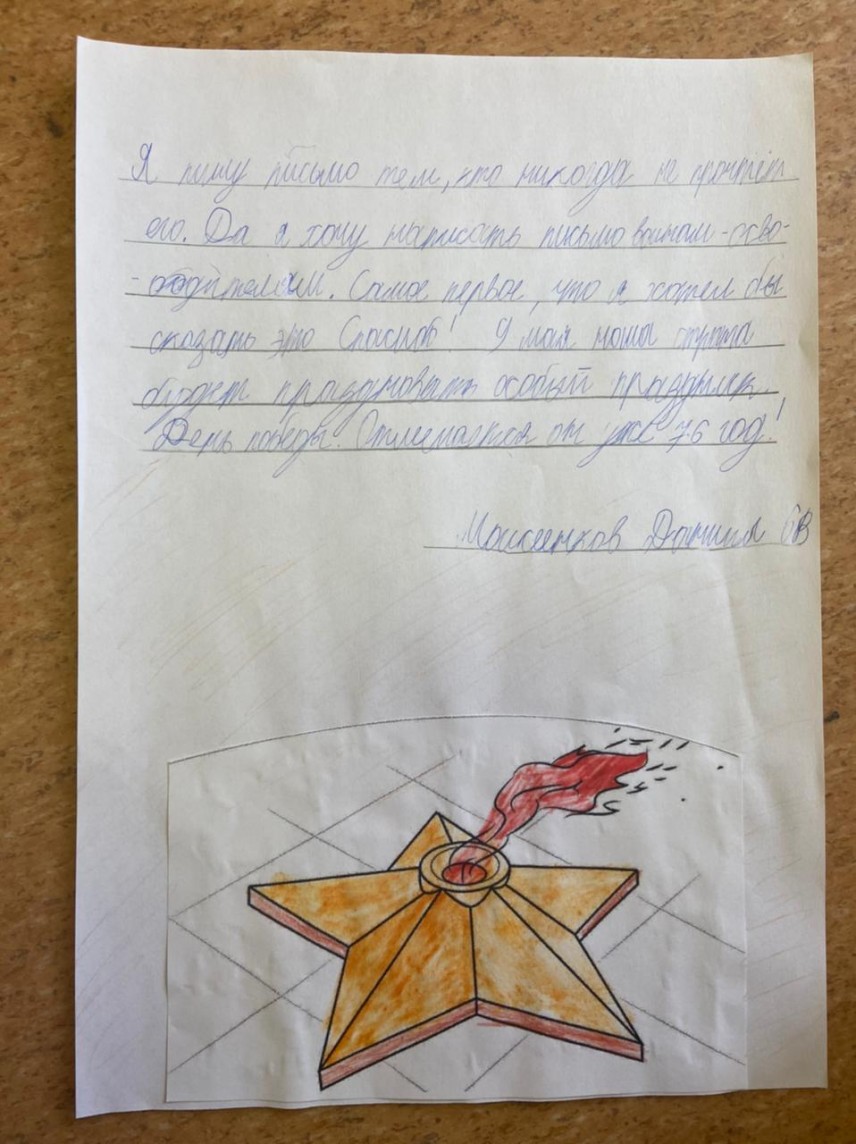 Я пишу письмо тем, кто никогда не прочтёт
его. Да я хочу написать письмо воинам-осво-
-бодителям. Самое первое, что я хотел бы
сказать это Спасибо! 9 мая наша страна
будет праздновать особый праздник
День победы. Отмечается он уже 76 год!
Моисеенков Даниил 6В